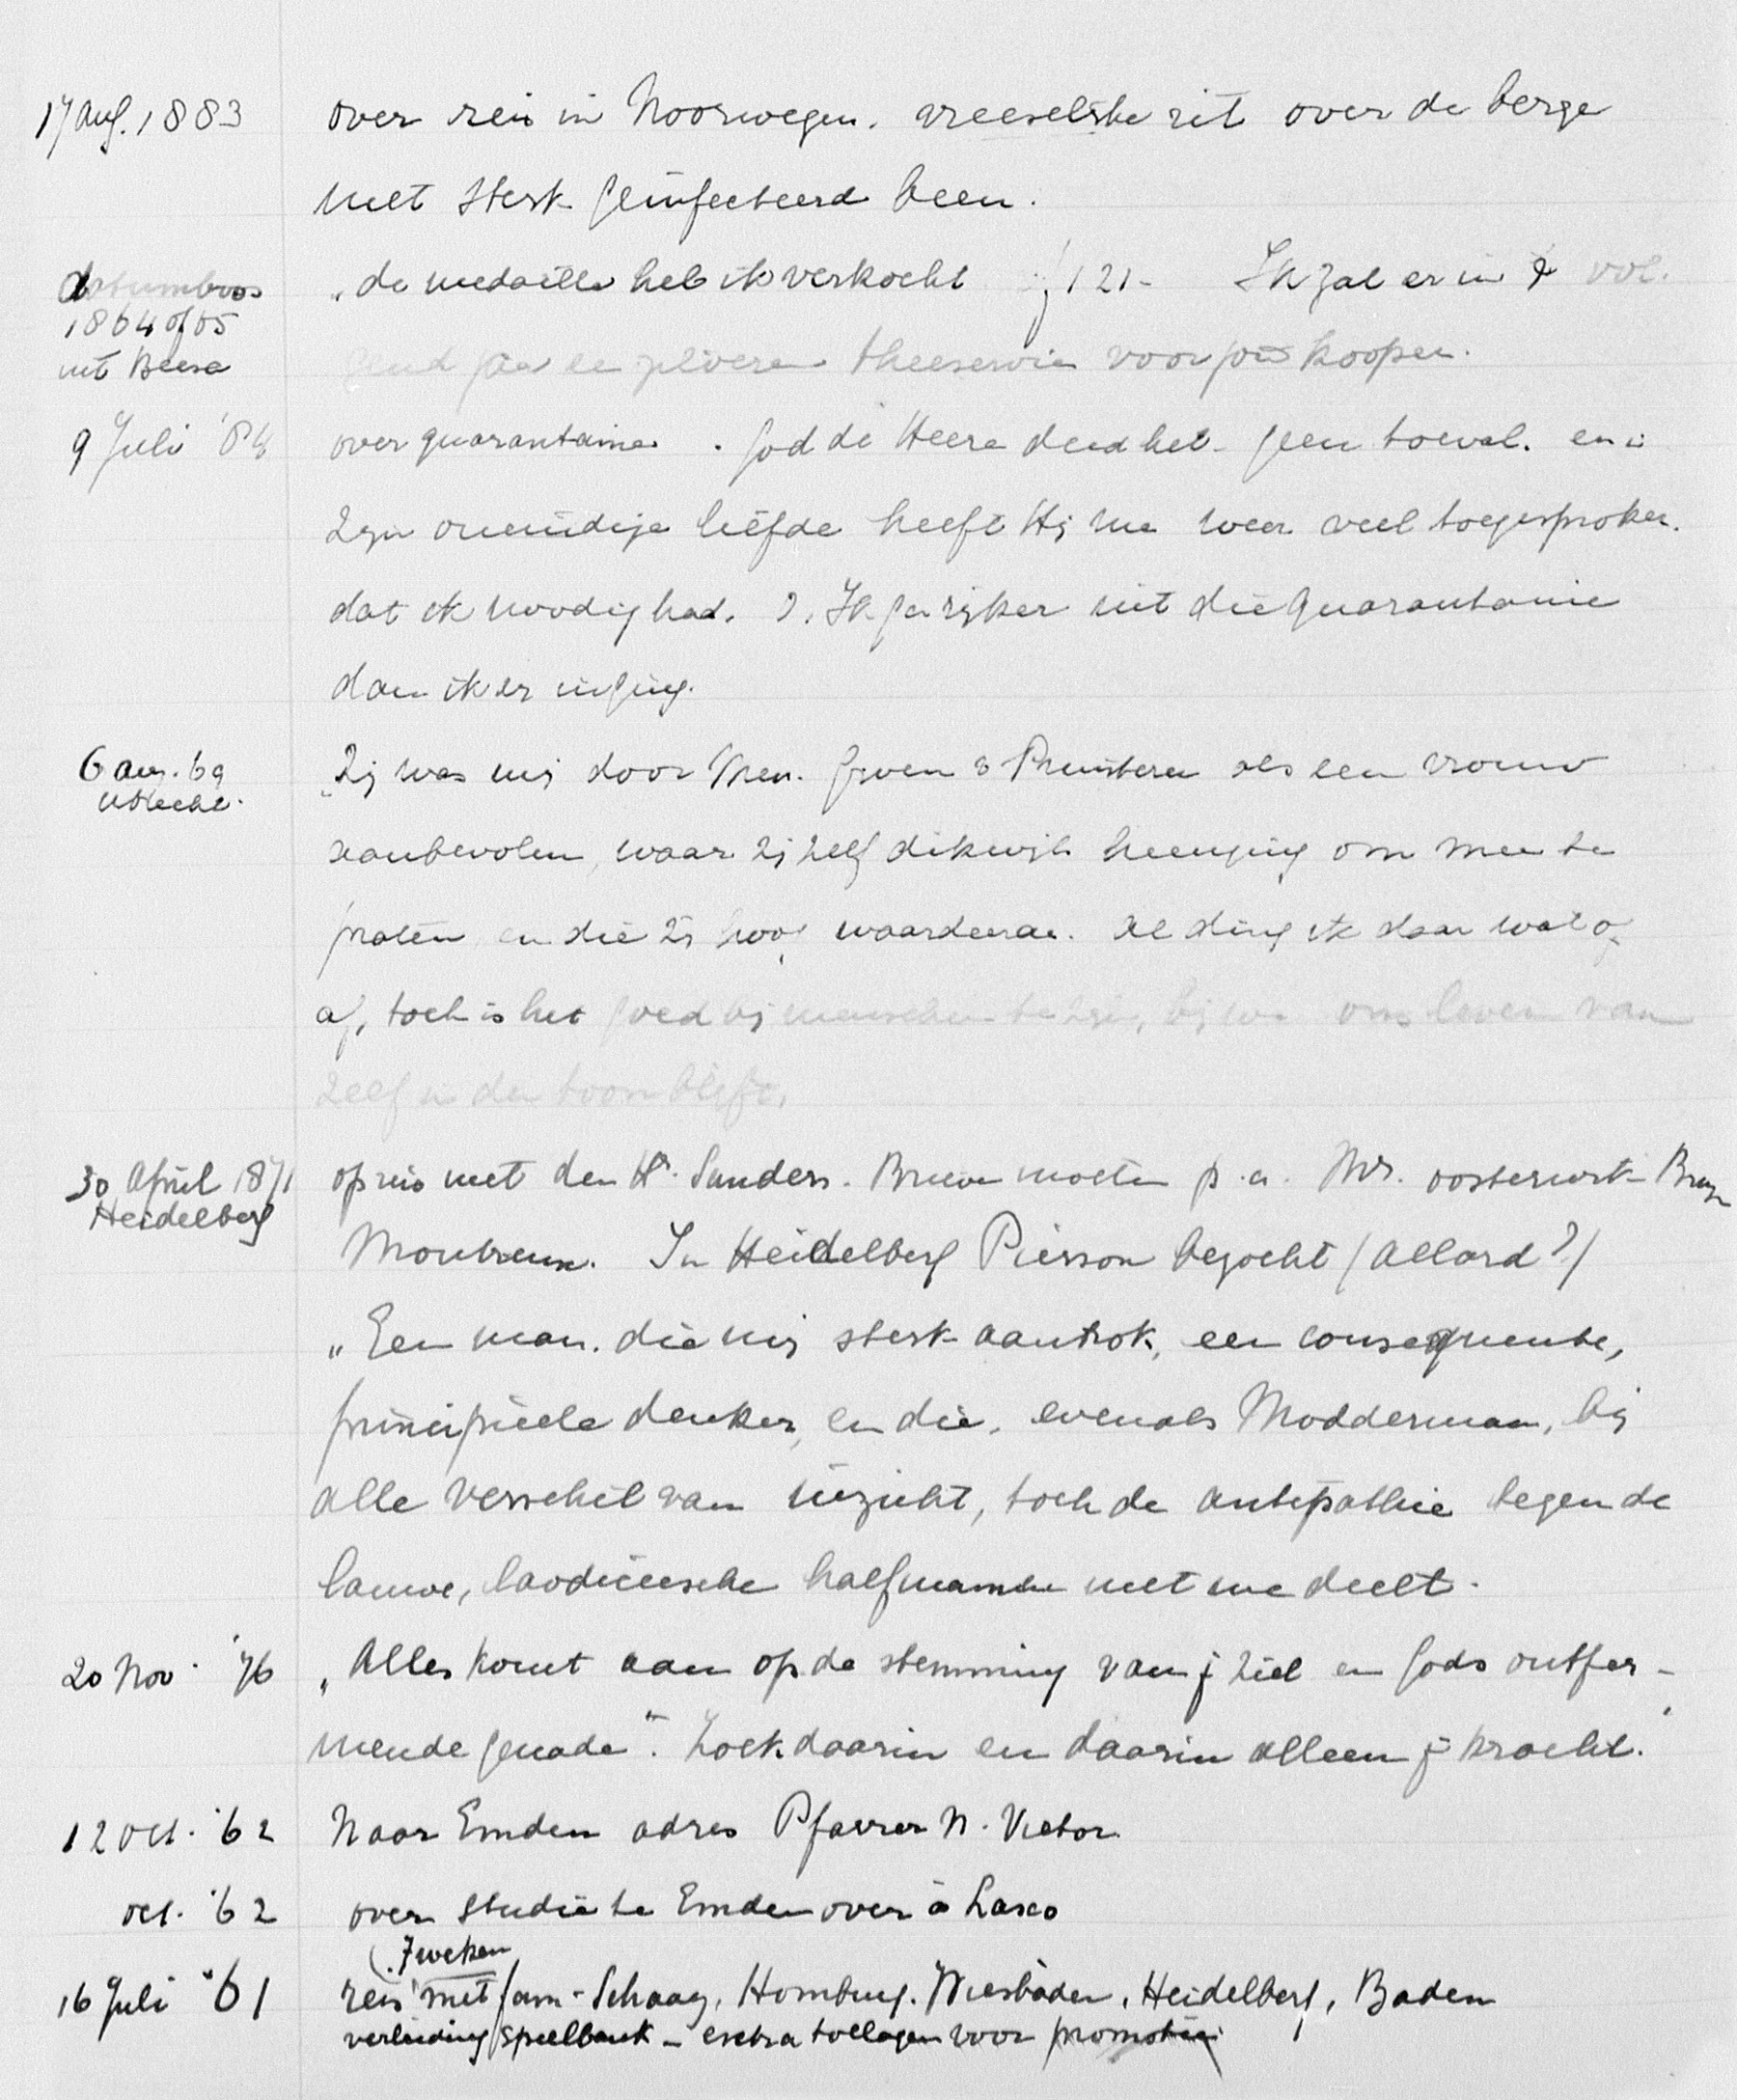 17 Aug. 1883 over reis in Noorwegen. vreeselijke rit over de berge
met sterk geïnfecteerd been.
datumloos „de medaille heb ik verkocht f 121- Ik zal er in 't vol-
1864 of 65
uit Beesd gend jaar een zilveren theeservies voor jou koopen.
9 Juli '84 over quarantaine. God de Heere deed het. geen toeval. en in
zijn oneindige liefde heeft Hij me weer veel toegesproken.
dat ik noodig had. Ik ga rijker uit die quarantaine
dan ik er inging.
6 aug. 69 „Zij was mij door Mev. Groen v Prinsterer als een vrouw
Utrecht.
aanbevolen, waar zij zelf dikwijls heenging om mee te
praten en die zij hoog waardeerde. Al ding ik daar wat op
af, toch is het goed bij menschen te zijn, bij wie ons leven van
zelf in den toon blijft.
30 April 1871 op reis met den Hr. Sanders. Brieven moeten p.a. Mr. Oosterwijk Bruyn
Heidelberg
Montreux. In Heidelberg Pierson bezocht (Allard?)
„Een man. die mij sterk aantrok, een consequente,
principieele denker, en die, evenals Modderman, bij
alle verschil van inzicht, toch de antipathie tegen de
lauwe, laodiceesche halfmannen met me deelt.
20 Nov. '76 „Alles komt aan op de stemming van je ziel en Gods ontfer-
mende genade". Zoek daarin en daarin alleen je kracht."
12 Oct. '62 Naar Emden adres Pfarrer N. Victor.
oct. '62 over studie te Emden over à Lasco
(7 weken
16 Juli '61 reis met fam. Schaay, Homburg. Wiesbaden, Heidelberg, Baden
verleiding speelbank - extra toelagen voor promotie